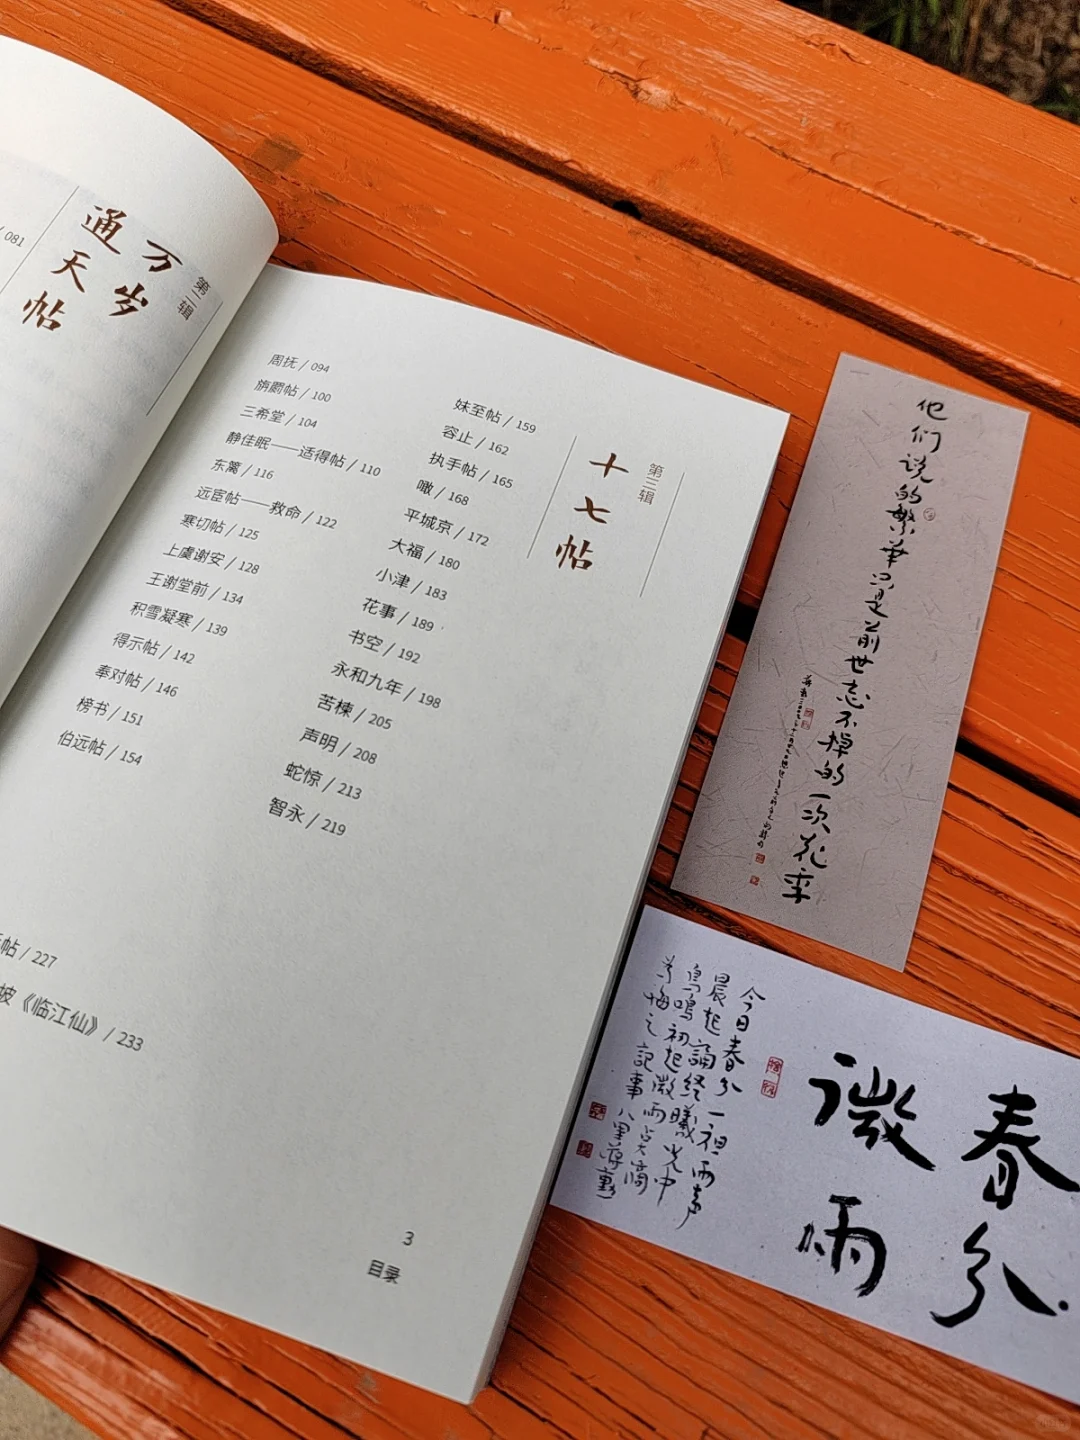 / 081
第二辑
万岁
通天帖
周抚 / 094
旃罽帖 / 100
三希堂 / 104
静佳眠——适得帖 / 110
东篱 / 116
远宦帖——救命 / 122
寒切帖 / 125
上虞谢安 / 128
王谢堂前 / 134
积雪凝寒 / 139
得示帖 / 142
奉对帖 / 146
榜书 / 151
伯远帖 / 154
第三辑
十七帖
妹至帖 / 159
容止 / 162
执手帖 / 165
噉 / 168
平城京 / 172
大福 / 180
小津 / 183
花事 / 189
书空 / 192
永和九年 / 198
苦楝 / 205
声明 / 208
蛇惊 / 213
智永 / 219
帖 / 227
坡《临江仙》 / 233
3
目录
他们说的繁华只是前世忘不掉的一次花季
春分
微雨
今日春分一裡雨声
晨起誦经曦光中
鳥鳴初起微雨点滴
记事八里蔣勳